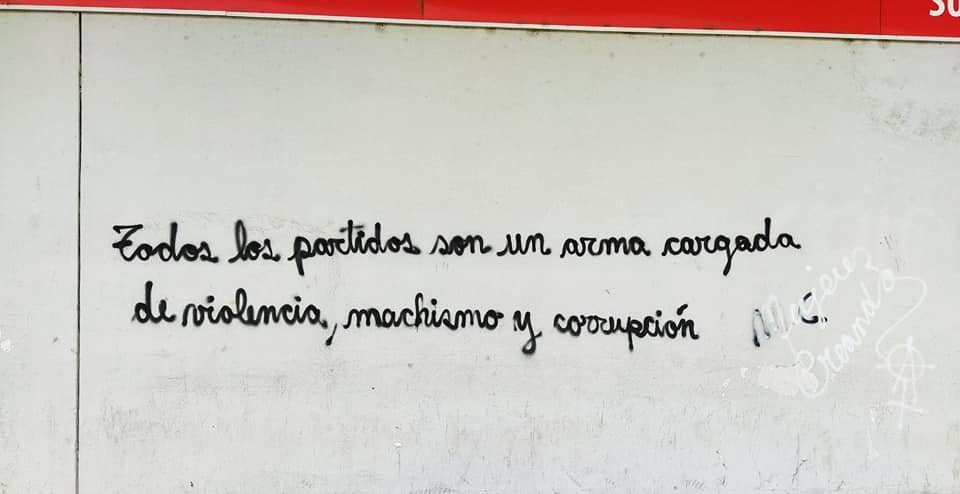 SU
Todos los partidos son un arma cargada
de violencia, machismo y corrupción
Mujeres
Creando